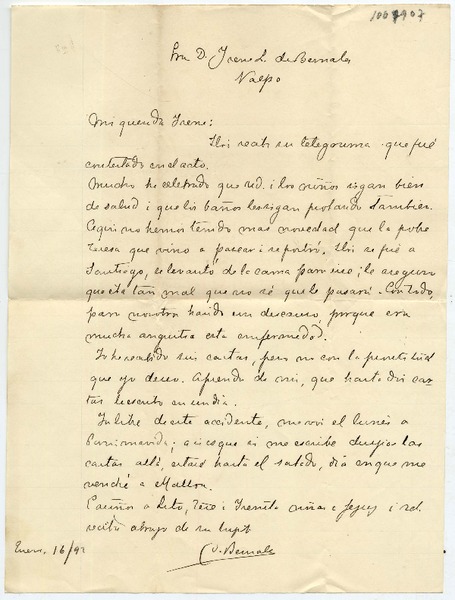 1007907
Sra D. Irene L. de Bernales
Valpo
Mi querida Irene:
Ayer recibí su telegrama que fué
contestado en el acto.
Mucho he celebrado que Ud. i los niños sigan bien
de salud i que los baños les sigan probando tambien.
Aqui no hemos tenido mas novedad que la pobre
Teresa que vino a pasear i . se fué a
Santiago, se levantó de la cama para irse; le aseguro
que está tan mal que no sé que le pasará. Con todo,
para nosotros ha sido un descanso, porque era
mucha angustia esta enfermedad.
Yo he recibido sus cartas, pero no con la puntualidad
que yo deseo. Aprenda de mi, que hasta dos car-
tas le escribo en un dia.
Ya libre de este accidente, me voi el lunes a
Panimavida; asi es que si me escribe dirijas las
cartas allá, estaré hasta el sabado, dia en que me
vendré a
Cariños a Lito, i Irenita, niñas i Ud.
reciba abrazo de su
C. Bernales
Enero, 16/92